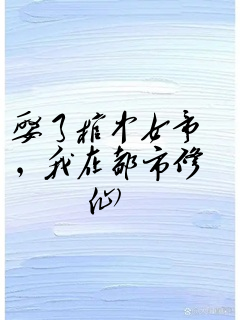 娶了棺中女帝
，我在都市修
仙）